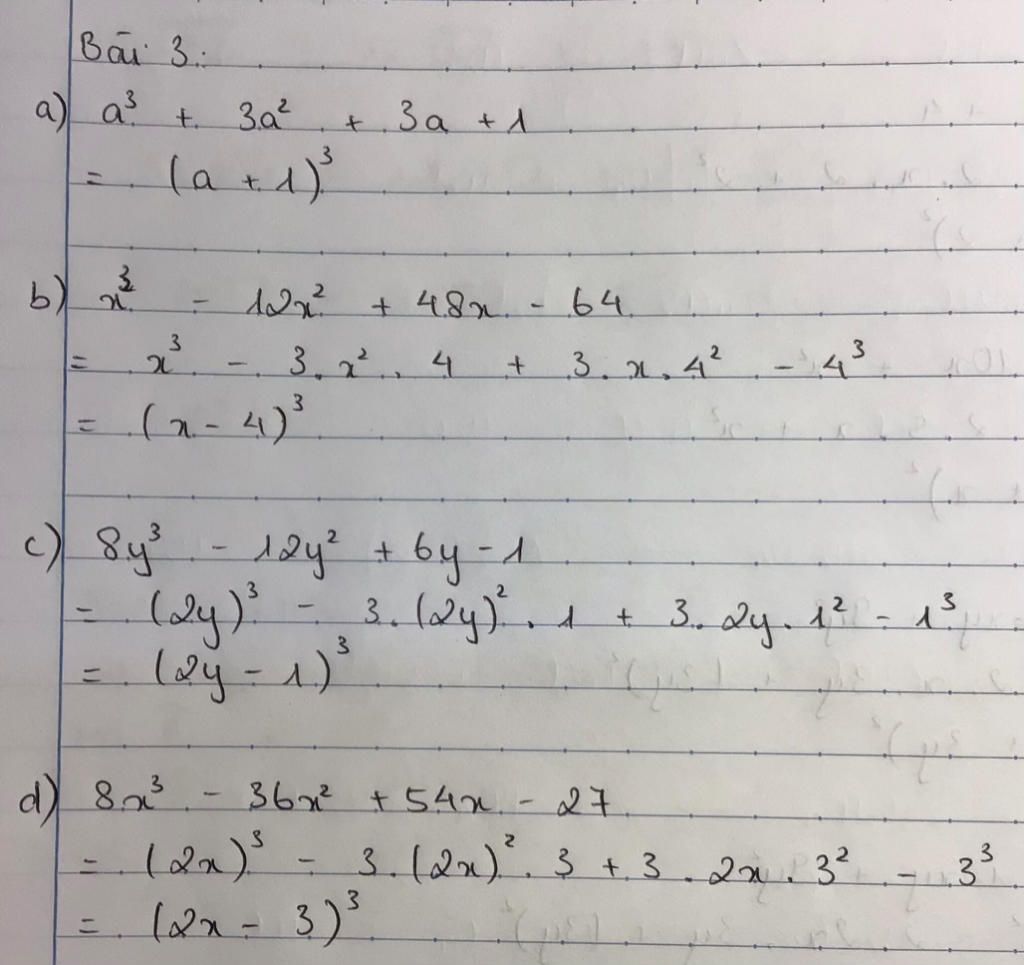 Bài 3:
a) a³ + 3a² + 3a + 1
= (a + 1)³
b) x³ - 12x² + 48x - 64
= x³ - 3.x².4 + 3.x.4² - 4³
= (x - 4)³
c) 8y³ - 12y² + 6y - 1
= (2y)³ - 3.(2y)².1 + 3.2y.1² - 1³
= (2y - 1)³
d) 8x³ - 36x² + 54x - 27
= (2x)³ - 3.(2x)².3 + 3.2x.3² - 3³
= (2x - 3)³